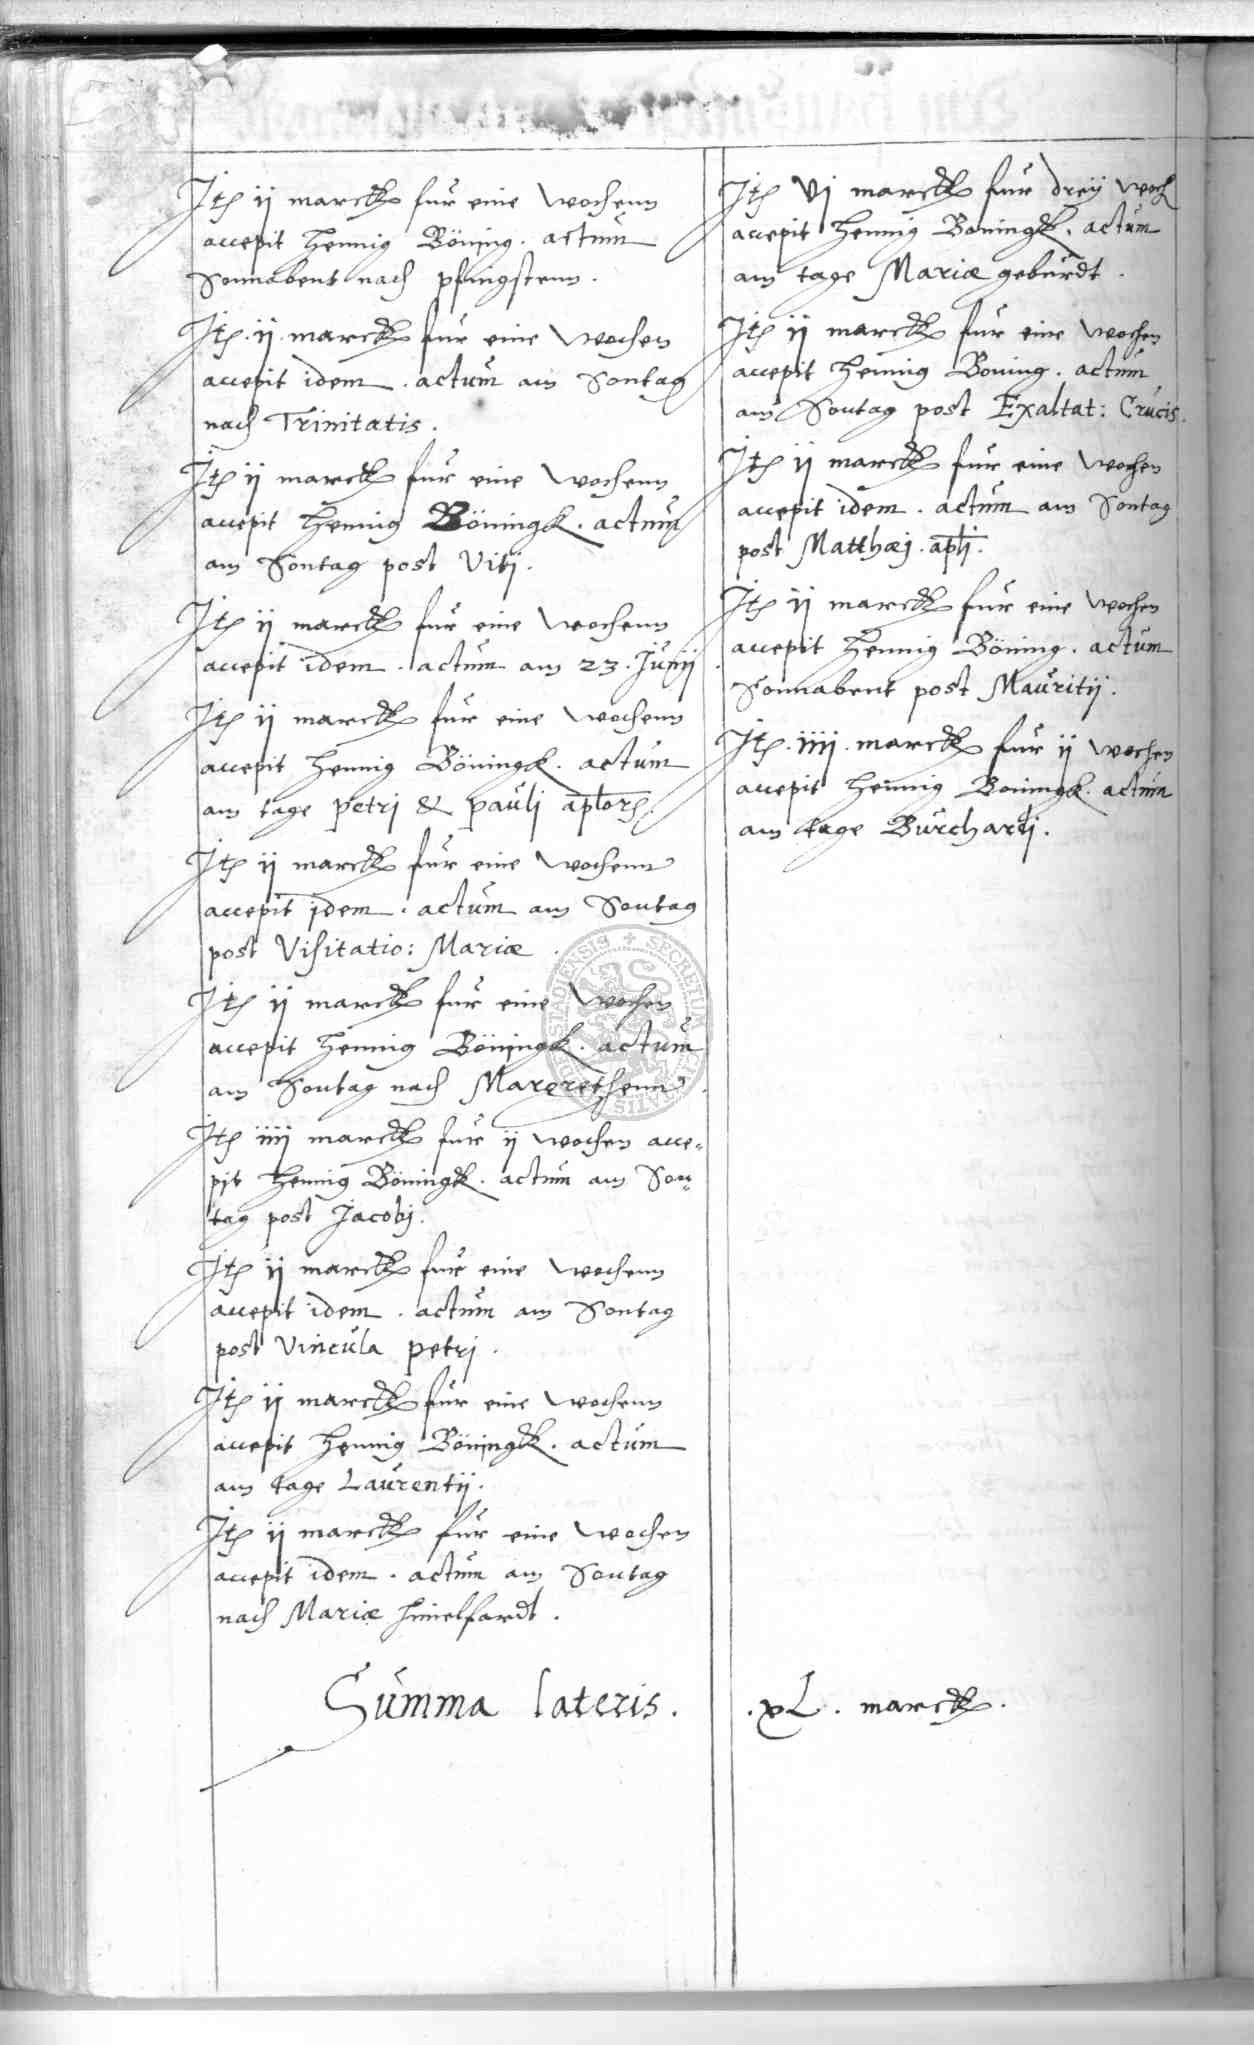 Jtē ij marck fur eine wochenn
accepit Hennig Böning. actum
Sonnabent nach pfingstenn.
Jtē. ij. marck fur eine wochen
accepit idem. actum am Sontag
nach Trinitatis.
Jtē ij marck fur eine wochenn
accepit Hennig Böningk. actum
am Sontag post Viti.
Jtē ij marck fur eine wochenn
accepit idem. actum am 23. Junij
Jtē ij marck fur eine wochenn
accepit Hennig Böningk. actum
am tage Petri & Pauli aplorū.
Jtē ij marck fur eine wochenn
accepit idem. actum am Sontag
post Visitatio: Mariæ.
Jtē ij marck fur eine wochen
accepit Hennig Böningk. actum
am Sontag nach Margrethenn.
Jtē iiij marck fur ij wochen acce-
pit Hennig Böningk. actum am Son-
tag post Jacobj.
Jtē ij marck fur eine wochenn
accepit idem. actum am Sontag
post Vincula Petri.
Jtē ij marck fur eine wochenn
accepit Hennig Böningk. actum
am tage Laurentij.
Jtē ij marck fur eine wochen
accepit idem. actum am Sontag
nach Mariæ himelfardt.
Summa lateris. .xL. marck.
Jtē vj marck fur dreij woch
accepit Hennig Boningk. actum
am tage Mariæ geburdt.
Jtē ij marck fur eine wochen
accepit Hennig Boning. actum
am Sontag post Exaltat: Crucis.
Jtē ij marck fur eine wochen
accepit idem. actum am Sontag
post Matthæj. apli.
Jtē ij marck fur eine wochen
accepit Hennig Böning. actum
Sonnabent post Mauritij.
Jtē. iiij. marck fur ij wochen
accepit Hennig Boningk. actum
am tage Burchardi.